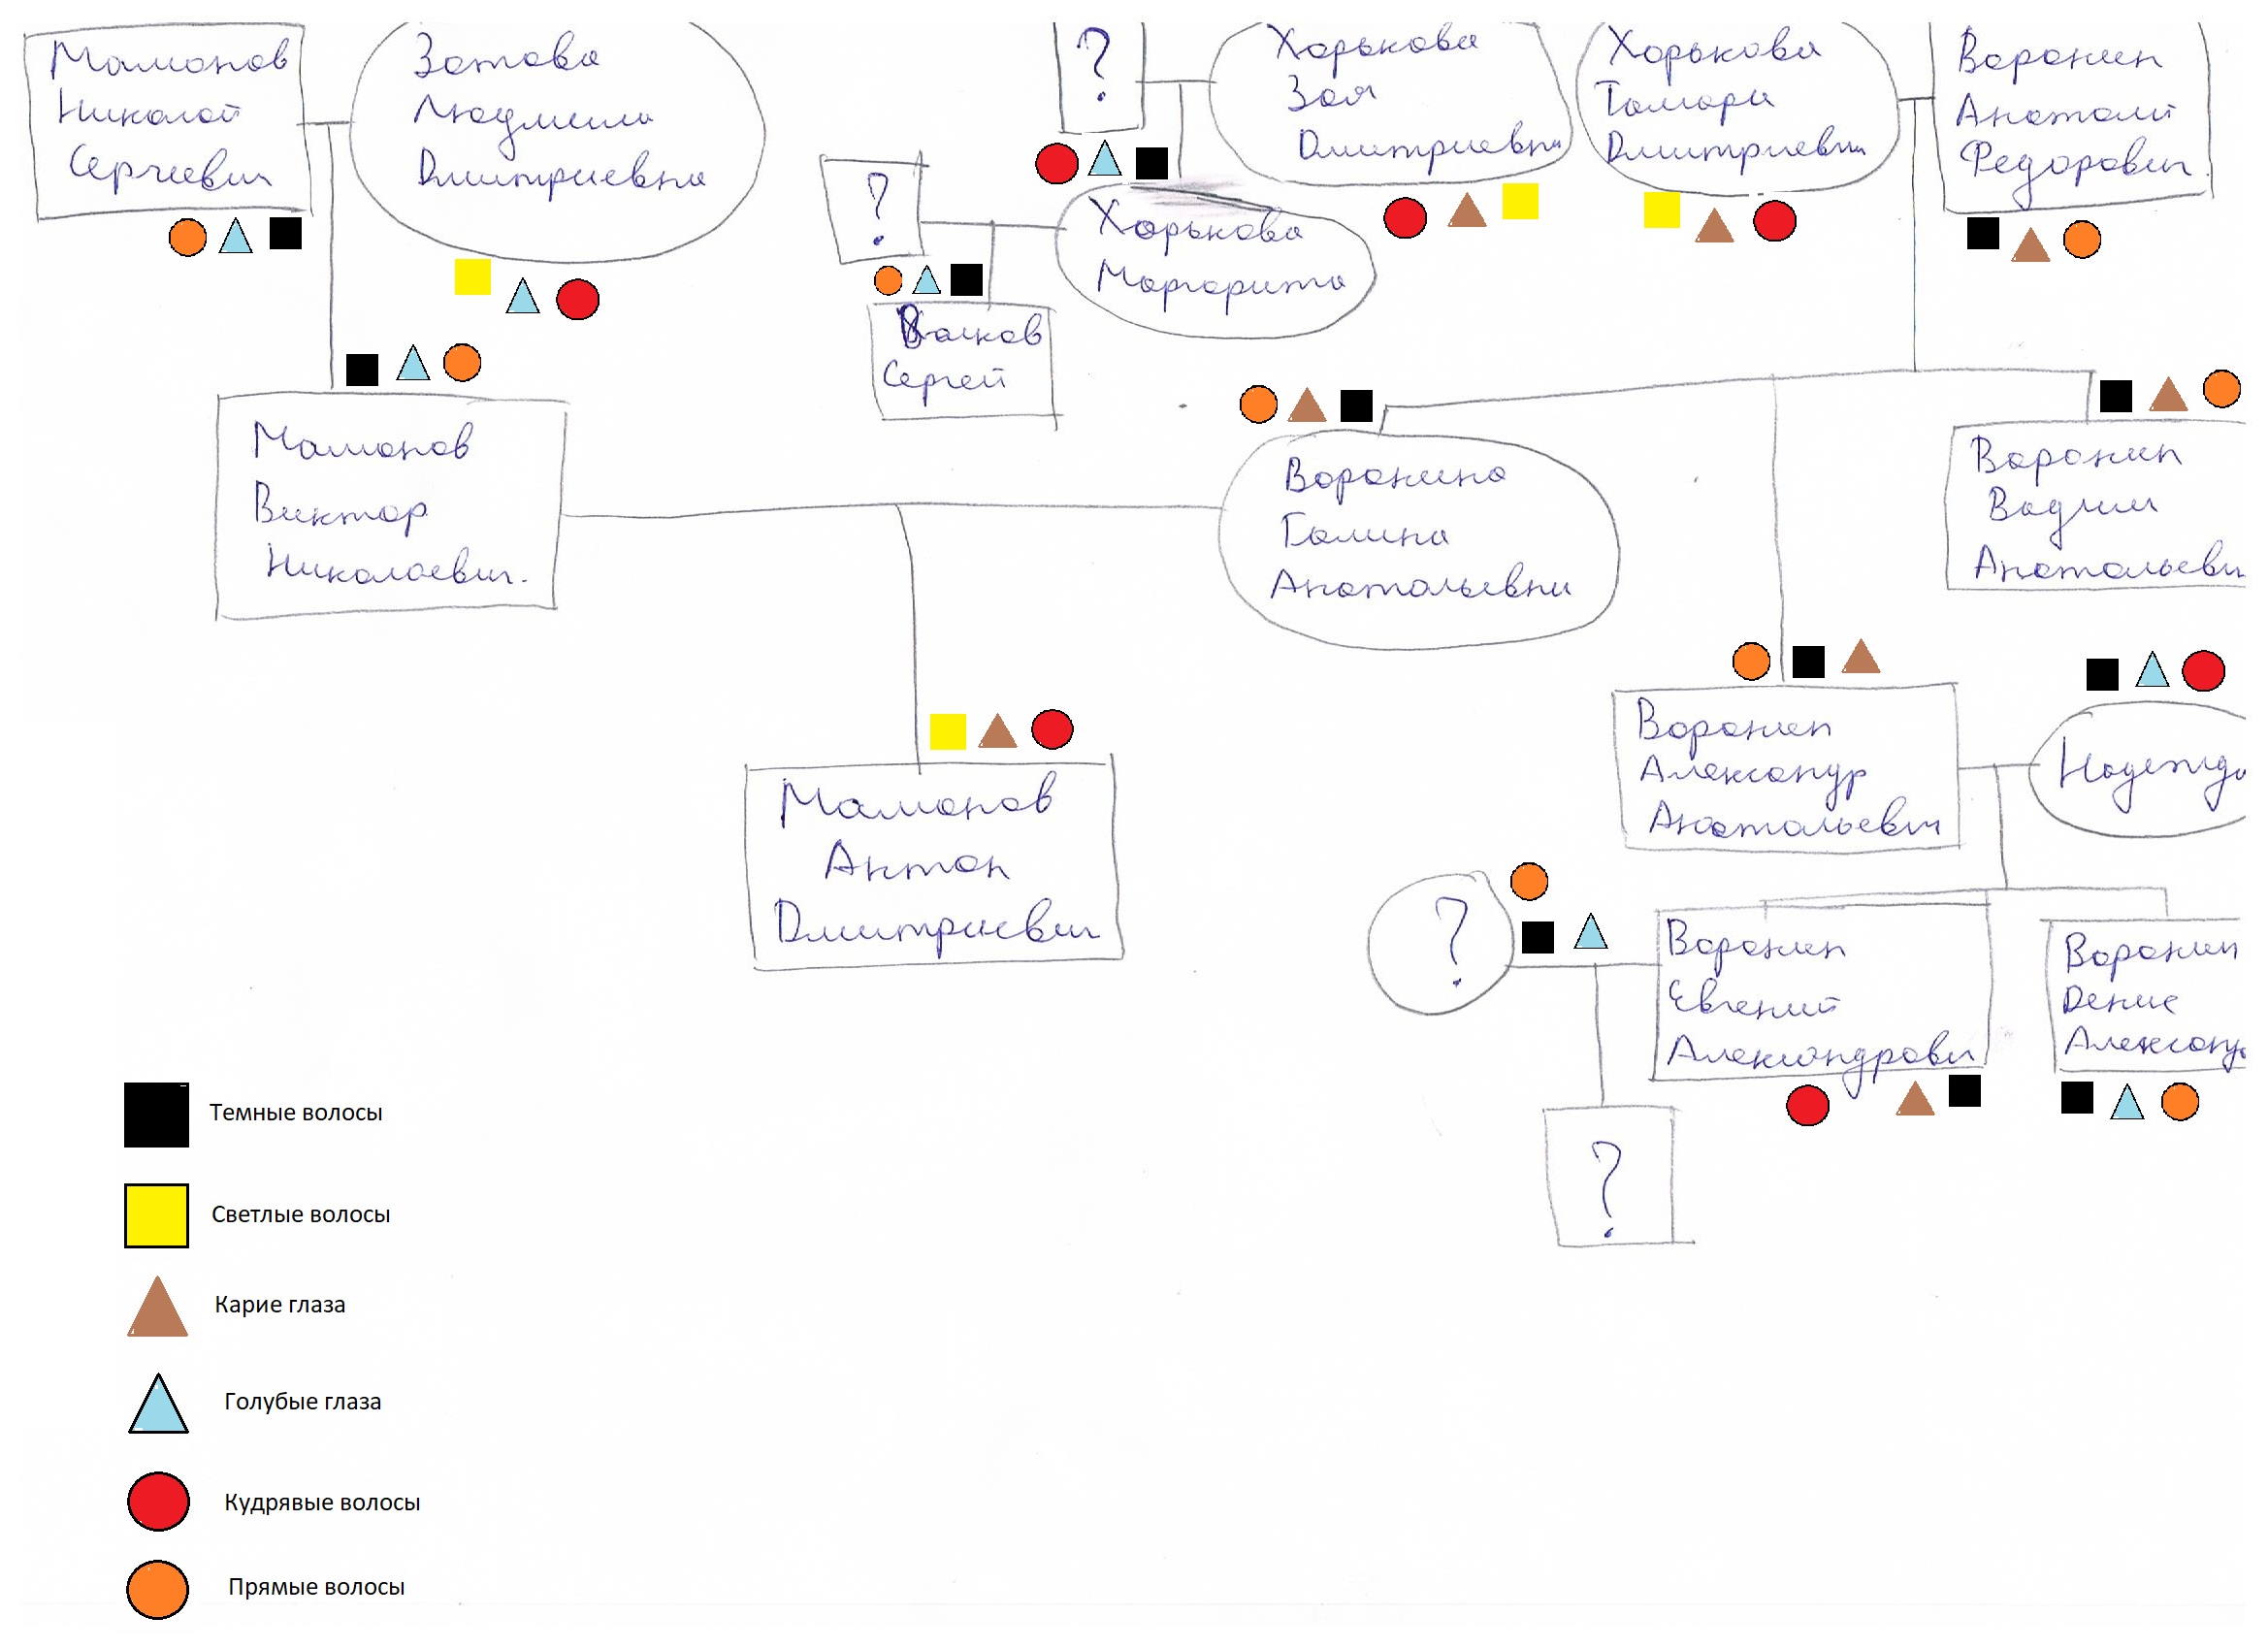 Мамонов
Николай
Сергеевич
Зотова
Людмила
Дмитриевна
?
Хорькова
Зоя
Дмитриевна
Хорькова
Тамара
Дмитриевна
Воронин
Анатолий
Федорович
?
Хорькова
Маргарита
Волков
Сергей
Мамонов
Виктор
Николаевич.
Воронина
Галина
Анатольевна
Воронин
Вадим
Анатольевич
Мамонов
Антон
Дмитриевич
Воронин
Александр
Анатольевич
Надежда
?
Воронин
Евгений
Александрови
Воронин
Денис
Александр
?
Темные волосы
Светлые волосы
Карие глаза
Голубые глаза
Кудрявые волосы
Прямые волосы